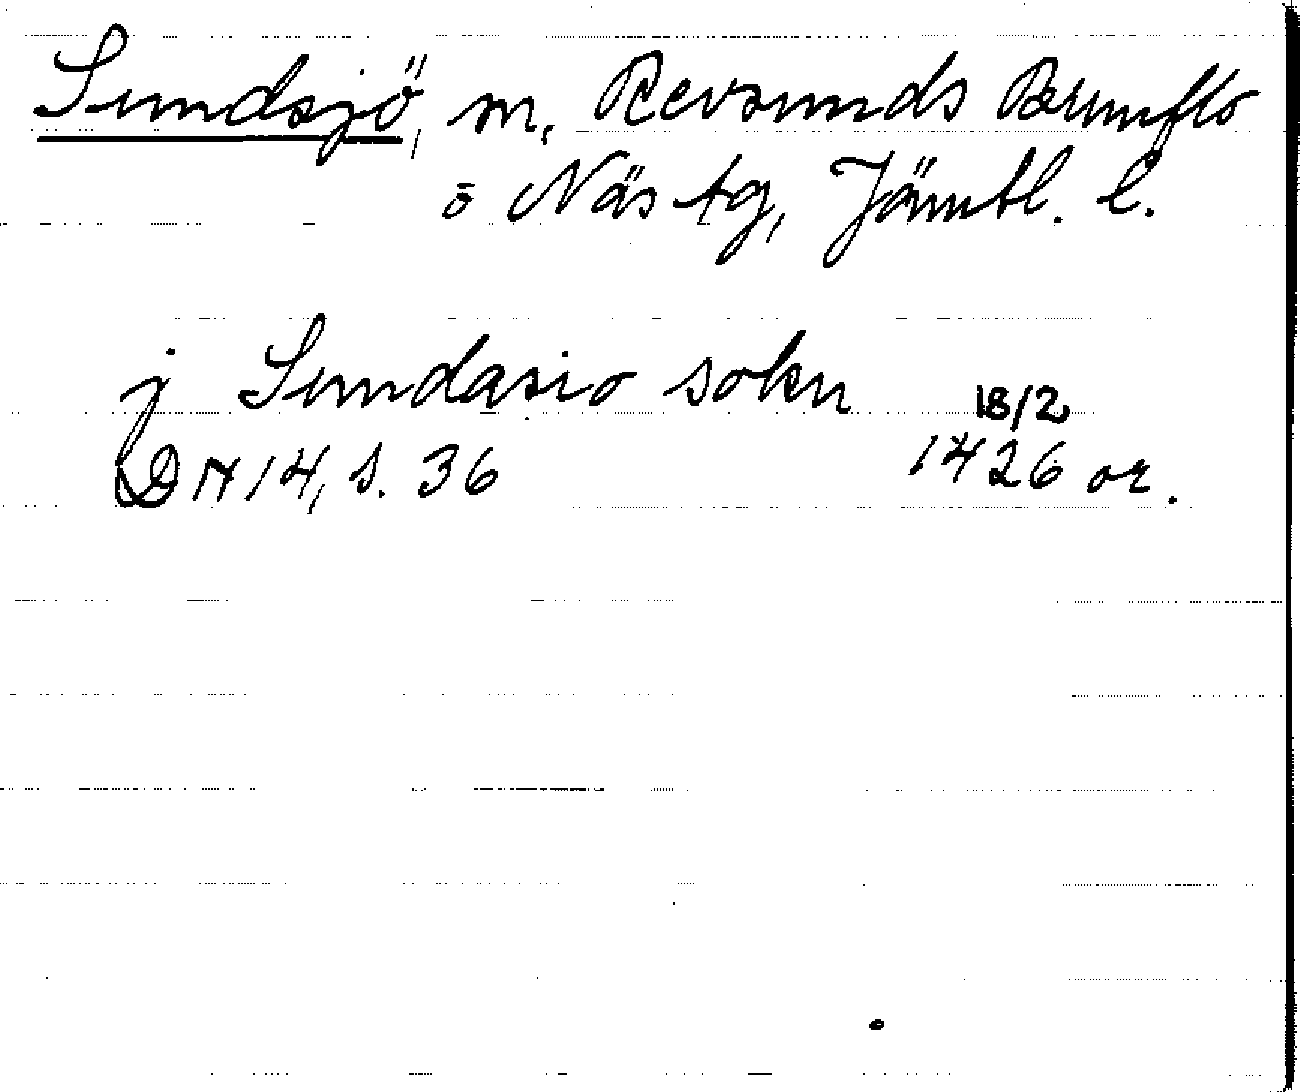 Sundsjö, sn, Revsunds Brunflo
o Näs tg, Jämtl. l.
j Sundasio sokn 18/2
DN 14, s. 36 1426 or.